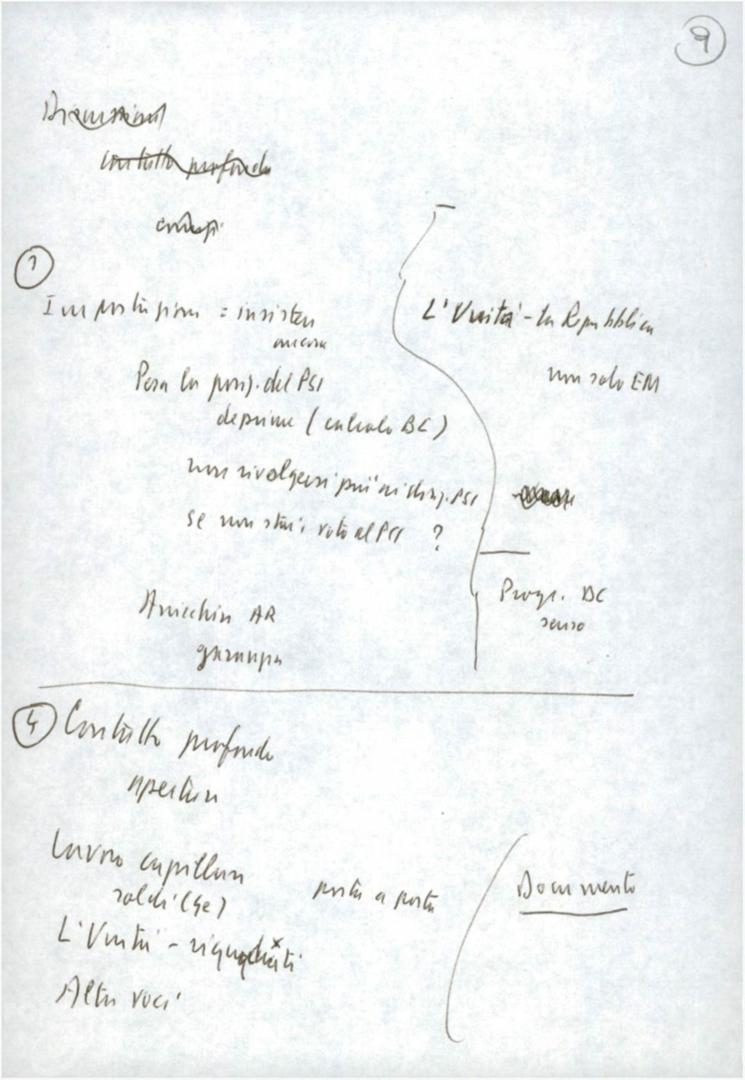 9
Discussioni
contatto profondo
1
Impostazioni = insistere
ancora
Pesa la posiz. del PSI
deprime (calcolo BC)
non rivolgersi più ai PSI
se non stai, voto al PCI ?
AR
L'Unità - La Repubblica
non solo EM
Progr. DC
senso
4 Contatto profondo
apertura
Lavoro capillare
soldi (Ge)
porta a porta
L'Unità -
Altre voci
Documento